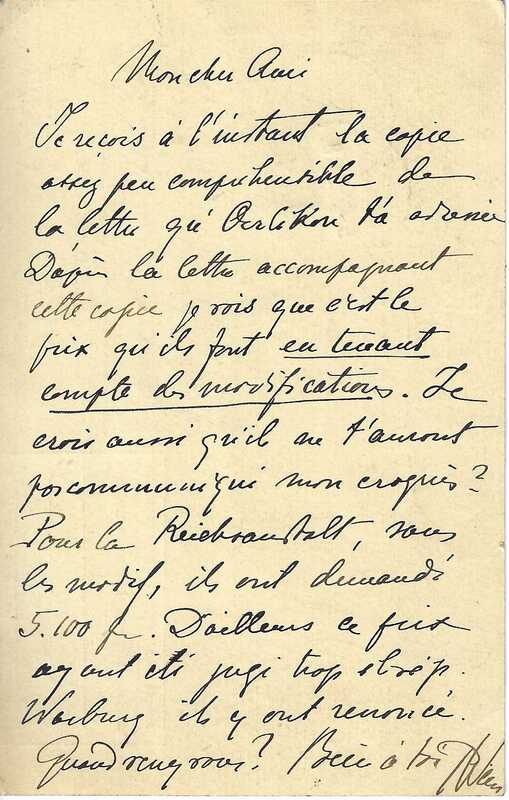 Mon cher Ami
Je reçois à l'instant la copie
assez peu compréhensible de
la lettre qu'Oerlikon t'a adressée
D'après la lettre accompagnant
cette copie je vois que c'est le
prix qu'ils font en tenant
compte des modifications. Je
crois aussi qu'ils ne t'auront
pas communiqué mon croquis?
Pour la Reichsanstalt, sans
les modif, ils ont demandé
5.100 fr. D'ailleurs ce prix
ayant été jugé trop
Warburg ils y ont renoncé.
Quand venez vous? Bien à toi